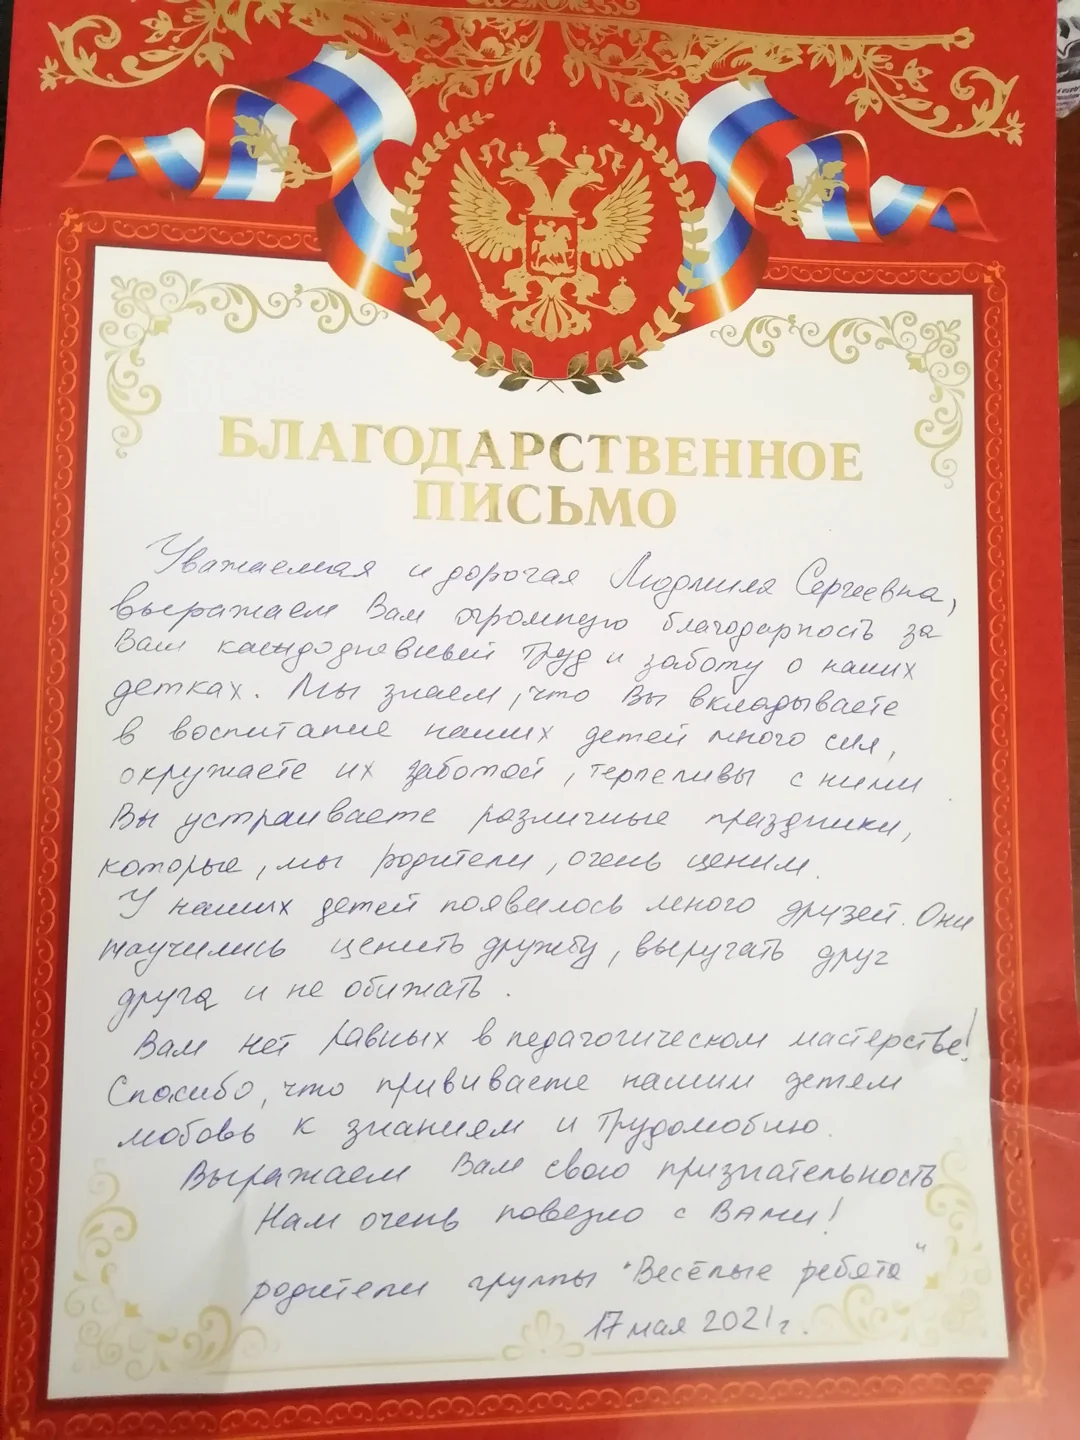 БЛАГОДАРСТВЕННОЕ
ПИСЬМО
Уважаемая и дорогая Людмила Сергеевна,
выражаем Вам огромную благодарность за
Ваш каждодневный труд и заботу о наших
детках. Мы знаем, что Вы вкладываете
в воспитание наших детей много сил,
окружаете их заботой, терпеливы с ними.
Вы устраиваете различные праздники,
которые, мы родители, очень ценим.
У наших детей появилось много друзей. Они
научились ценить дружбу, выручать друг
друга и не обижать.
Вам нет равных в педагогическом мастерстве!
Спасибо, что прививаете нашим детям
любовь к знаниям и трудолюбию.
Выражаем Вам свою признательность
Нам очень повезло с Вами!
родители группы "Весёлые ребята"
17 мая 2021 г.